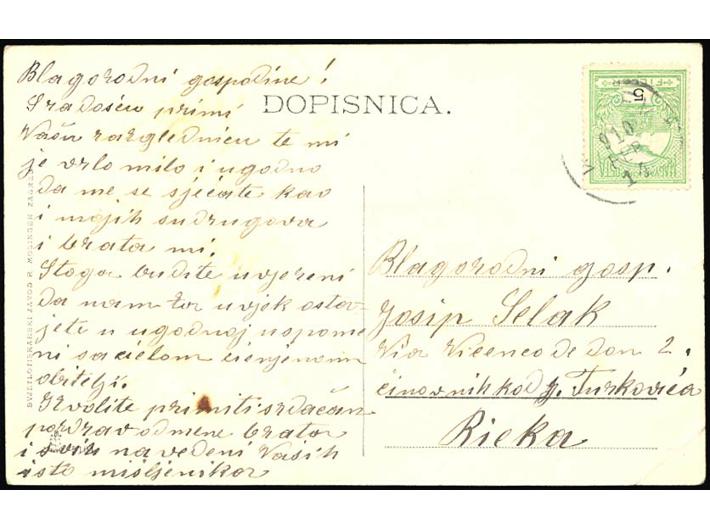 Blagorodni gospodine!
S radošću primi
Vašu razglednicu te mi
je vrlo milo i ugodno
da me se sjećate kao
i mojih sudrugova
i brata mi.
Stoga budite uvjereni
da nam za uvjek ostav-
jete u ugodnoj uspome
ni sa cielom cienjenom
obitelji.
Izvolite primiti srdačan
pozdrav od mene brata
i svih navedeni Vaših
isto mišljenika
DOPISNICA.
SVJETLOTISKARSKI ZAVOD R. MOSINGER ZAGREB
5
FILLER
MAGYAR
910
SEP
Blagorodni gosp.
Josip Selak
Via Vicenco de Don 2.
činovnik kod g. Turkovića
Rieka